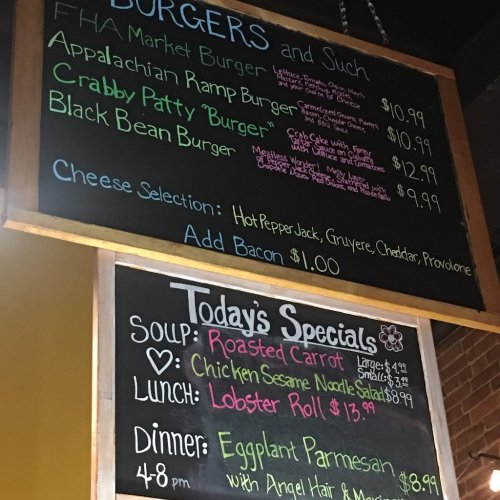 BURGERS and Such
FHA Market Burger
Lettuce, Tomato, Onion, Mayo,
Mustard, Ketchup, Pickles
and your choice of Cheese
$10.99
Appalachian Ramp Burger
Caramelized Onions, Ramps,
Bacon, Cheddar Cheese
and BBQ Sauce
$10.99
Crabby Patty "Burger"
Crab Cake with Fancy
Tartar Sauce on Ciabatta
with Lettuce and Tomatoes
$12.99
Black Bean Burger
Meatless Wonder! Melty Layer
of Pepper Jack Cheese, Slathered with
Chipotle Mayo, Red Onions, and
$9.99
Cheese Selection: Hot Pepper Jack, Gruyere, Cheddar, Provolone
Add Bacon $1.00
Today's Specials
SOUP: Roasted Carrot
Large: $4.99
Small: $3.99
♡: Chicken Sesame Noodle Salad $8.99
LUNCH: Lobster Roll $13.99
DINNER: Eggplant Parmesan $8.99
4-8 pm with Angel Hair &